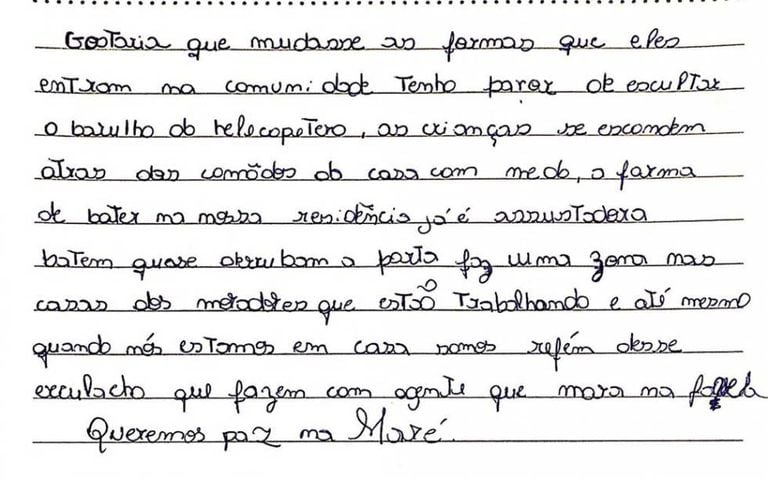 Gostaria que mudasse as formas que eles
entram na comunidade Tenho parar de escultar
o barulho do helecopetero, as crianças se escondem
atras das comôdas da casa com medo, a forma
de bater na nossa residência já é assustadora
batem quase derrubam a porta faz uma zona nas
casas dos moradores que estão Trabalhando e até mesmo
quando nós estamos em casa somos refém desse
esculacho que fazem com agente que mora na favela
Queremos paz na Maré.